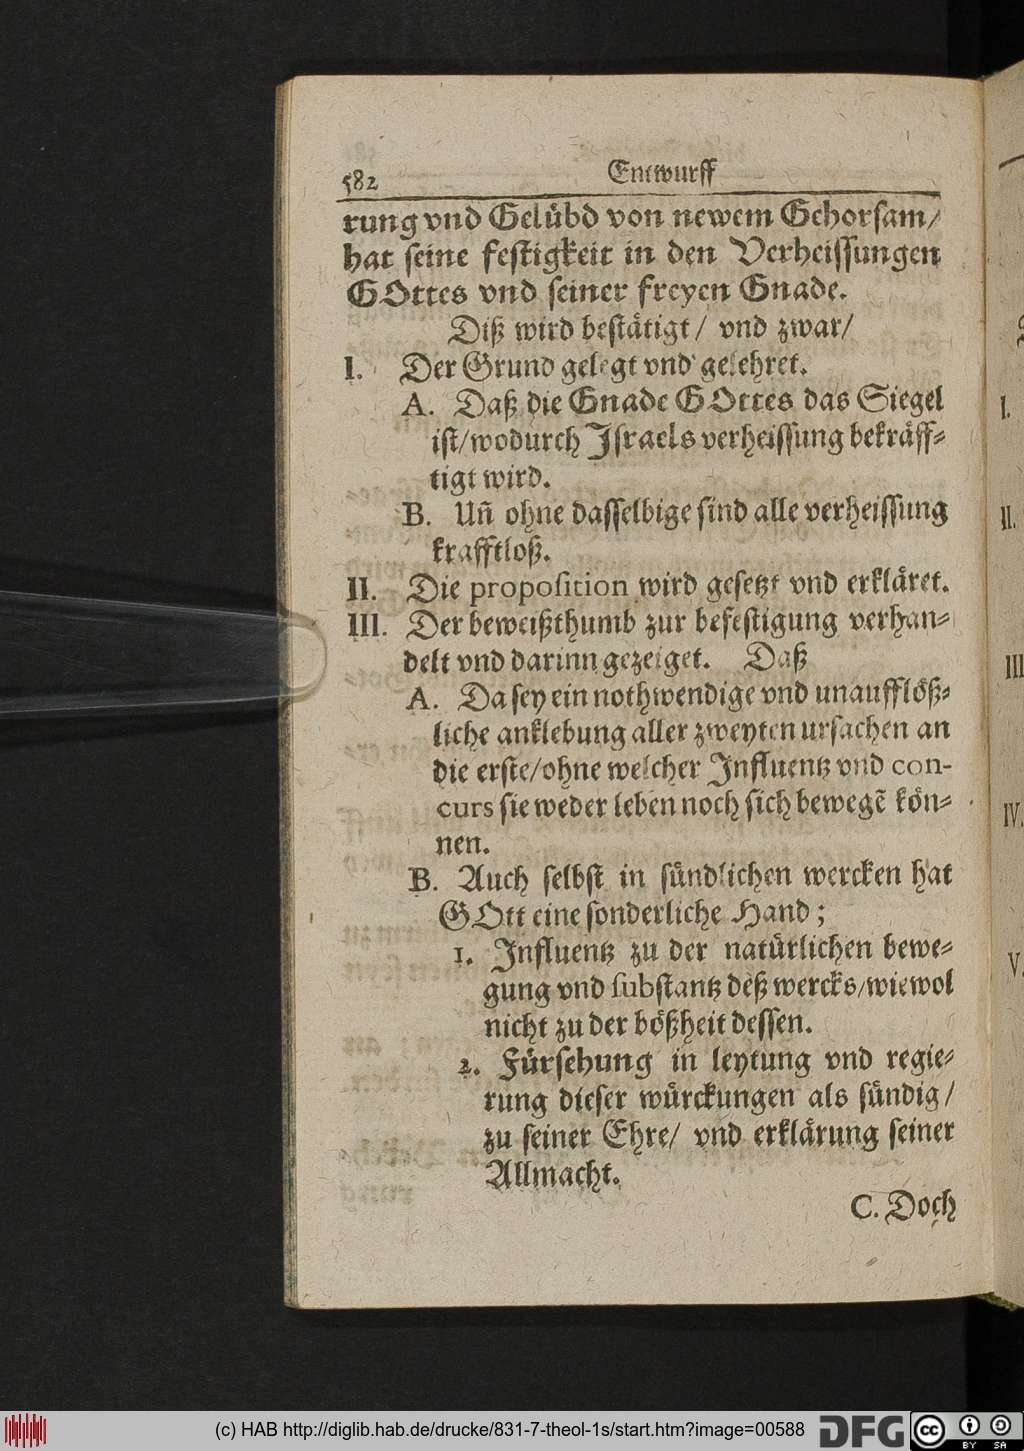 582 Entwurff
rung vnd Gelübd von newem Gehorsam/
hat seine festigkeit in den Verheissungen
GOttes vnd seiner freyen Gnade.
Diß wird bestätigt/ vnd zwar/
I. Der Grund gelegt vnd gelehret.
A. Daß die Gnade GOttes das Siegel
ist/wodurch Israels verheissung bekräff-
tigt wird.
B. Uñ ohne dasselbige sind alle verheissung
krafftloß.
II. Die proposition wird gesetzt vnd erkläret.
III. Der beweißthumb zur befestigung verhan-
delt vnd darinn gezeiget. Daß
A. Da sey ein nothwendige vnd unaufflöß-
liche anklebung aller zweyten ursachen an
die erste/ohne welcher Influentz vnd con-
curs sie weder leben noch sich bewegẽ kön-
nen.
B. Auch selbst in sündlichen wercken hat
GOtt eine sonderliche Hand;
1. Influentz zu der natürlichen bewe-
gung vnd substantz deß wercks/wiewol
nicht zu der bößheit dessen.
2. Fürsehung in leytung vnd regie-
rung dieser würckungen als sündig/
zu seiner Ehre/ vnd erklärung seiner
Allmacht.
C. Doch
I.
II.
III
IV.
V.
(c) HAB http://diglib.hab.de/drucke/831-7-theol-1s/start.htm?image=00588 DFG cc BY SA